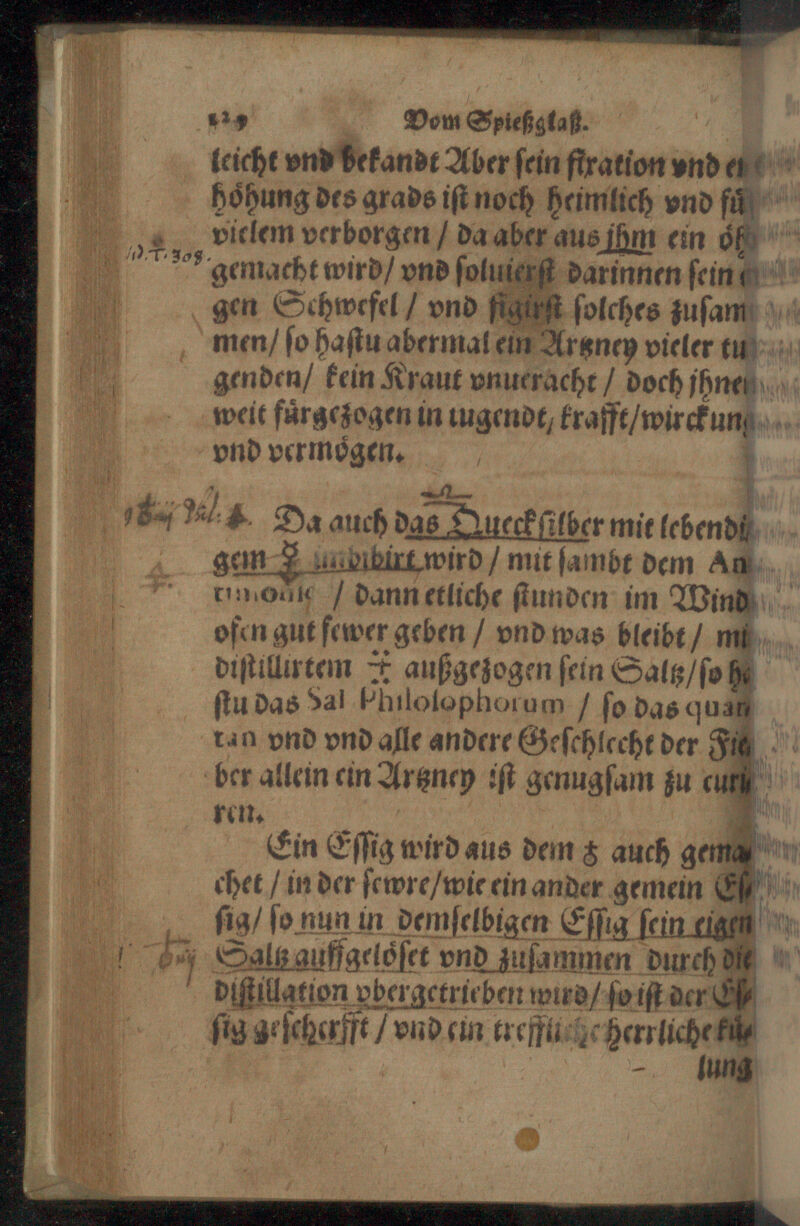 Vom Spießglaß.
leicht vnd bekandt Aber ſein fixation vnd er⸗
hoͤhung des grads iſt noch heimlich vnd fuͤr
vielem verborgen / da aber aus jhm ein oͤhl
gemacht wird/ vnd ſoluierſt darinnen ſein
gen Schwefel / vnd figirſt ſolches zuſam⸗
men/ ſo haſtu abermal ein Artzney vieler tu⸗
genden/ kein Kraut vnueracht / doch jhnen
weit fuͤrgezogen in tugendt, krafft/wirckung
vnd vermoͤgen.
Da auch das Queckſilber mit lebendi⸗
gem wird / mit ſambt dem An⸗
timonio / dann etliche ſtunden im Wind⸗
ofen gut fewer geben / vnd was bleibt / mit
diſtillirtem außgezogen ſein Saltz/ſo ha⸗
ſtu das Sal Philoſophorum / ſo das quar⸗
tan vnd vnd alle andere Geſchlecht der Fie⸗
ber allein ein Artzney iſt genugſam zu curi⸗
ren.
Ein Eſſig wird aus dem ♁ auch gema⸗
chet / in der ſewre/wie ein ander gemein Eſ⸗
ſig/ ſo nun in demſelbigen Eſſig ſein eigen
Saltz auffgeloͤſet vnd zuſammen durch die
diſtillation vbergetrieben wird/ ſo iſt der Eſ⸗
ſig geſcherfft / vnd ein treffliche herrliche kuͤ⸗
lung